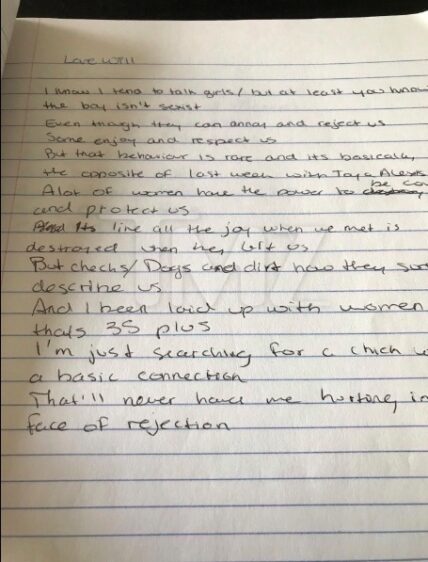 Love will
I know I tend to talk girls / but at least you know
the boy isn't sexist
Even though they can annoy and reject us
Some enjoy and respect us
But that behaviour is rare and its basically
the opposite of last week with Taya Alexis
A lot of women have the power to be
and protect us
And Its like all the joy when we met is
destroyed when they left us
But checks / Dogs and dirt how they
describe us
And I been laid up with women
thats 35 plus
I'm just searching for a chick
a basic connection
That'll never have me hurting in
face of rejection